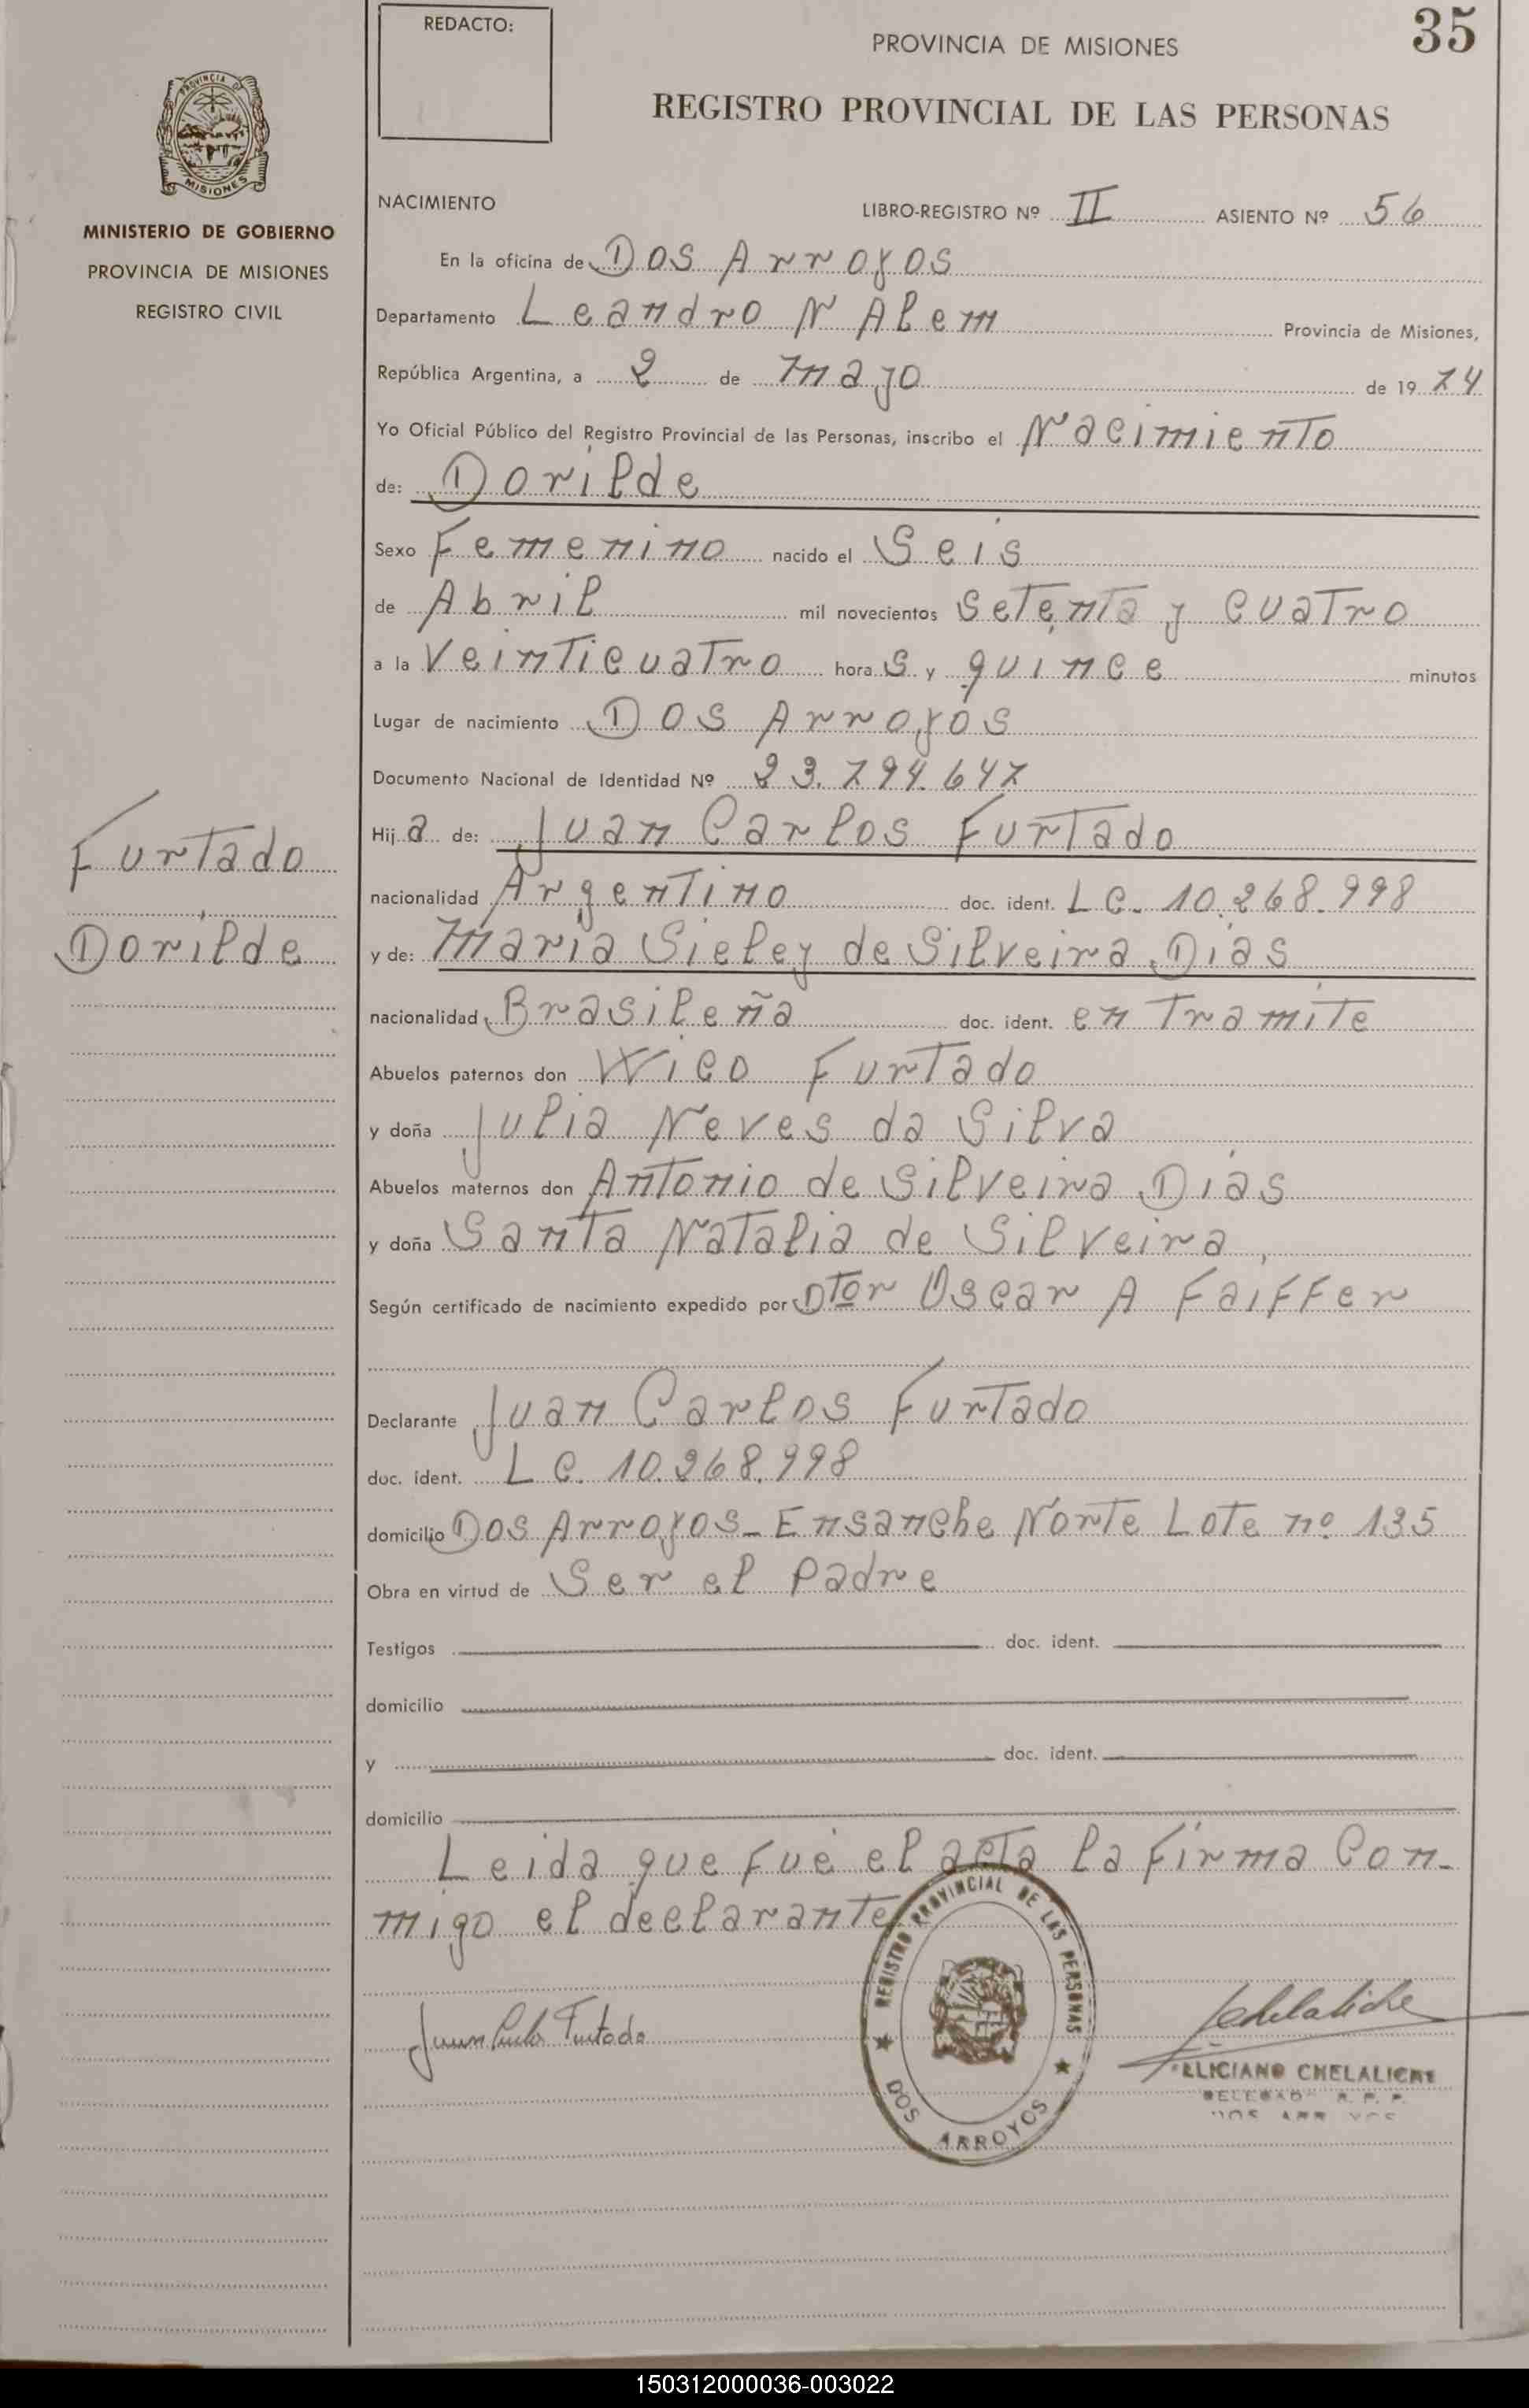 REDACTO:
PROVINCIA DE MISIONES
35
REGISTRO PROVINCIAL DE LAS PERSONAS
PROVINCIA DE
MISIONES
MINISTERIO DE GOBIERNO
PROVINCIA DE MISIONES
REGISTRO CIVIL
NACIMIENTO
LIBRO-REGISTRO Nº II ASIENTO Nº 56
En la oficina de Dos Arroyos
Departamento Leandro N Alem Provincia de Misiones,
República Argentina, a 2 de mayo de 1974
Yo Oficial Público del Registro Provincial de las Personas, inscribo el Nacimiento
de: Dorilde
Sexo Femenino nacido el Seis
de Abril mil novecientos setenta y cuatro
a la Veinticuatro hora s y quince minutos
Lugar de nacimiento Dos Arroyos
Documento Nacional de Identidad Nº 23.794.647
Hij a de: Juan Carlos Furtado
nacionalidad Argentino doc. ident. L C. 10.268.998
y de: Maria Sieley de Silveira Dias
nacionalidad Brasileña doc. ident. en Tramite
Abuelos paternos don Wico Furtado
y doña Julia Neves da Silva
Abuelos maternos don Antonio de Silveira Dias
y doña Santa Natalia de Silveira,
Según certificado de nacimiento expedido por Dtor Oscar A Faiffer
Furtado
Dorilde
Declarante Juan Carlos Furtado
doc. ident. L C. 10.268.998
domicilio Dos Arroyos - Ensanche Norte Lote nº 135
Obra en virtud de Ser el Padre
Testigos doc. ident.
domicilio
y doc. ident.
domicilio
Leida que fué el acta la firma Con-
migo el declarante
REGISTRO PROVINCIAL DE LAS PERSONAS
DOS ARROYOS
Juan Carlos Furtado
Chelaliche
FELICIANO CHELALICHE
DELEGADO R. P. P.
DOS ARROYOS
150312000036-003022